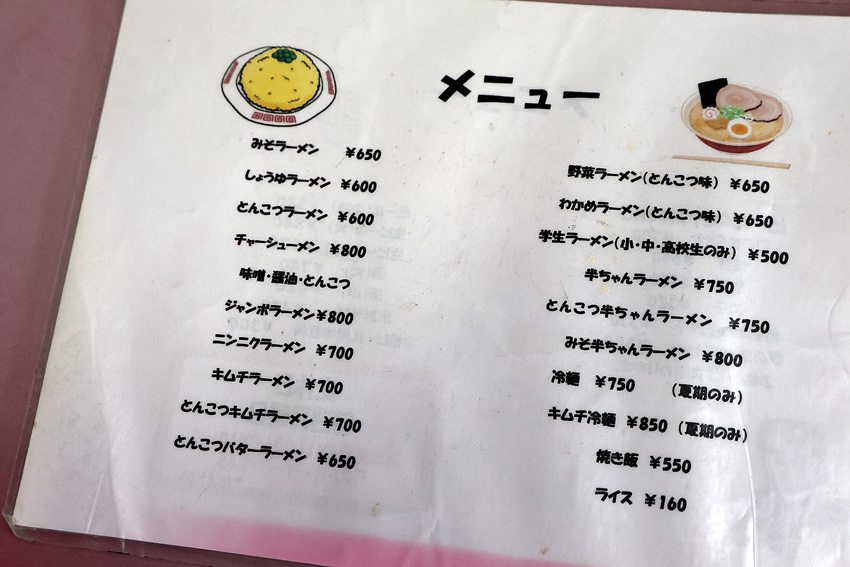 メニュー
みそラーメン ¥650
しょうゆラーメン ¥600
とんこつラーメン ¥600
チャーシューメン ¥800
味噌・醤油・とんこつ
ジャンボラーメン¥800
ニンニクラーメン ¥700
キムチラーメン ¥700
とんこつキムチラーメン ¥700
とんこつバターラーメン ¥650
野菜ラーメン(とんこつ味) ¥650
わかめラーメン(とんこつ味) ¥650
学生ラーメン(小・中・高校生のみ) ¥500
半ちゃんラーメン ¥750
とんこつ半ちゃんラーメン ¥750
みそ半ちゃんラーメン ¥800
冷麺 ¥750 (夏期のみ)
キムチ冷麺 ¥850 (夏期のみ)
焼き飯 ¥550
ライス ¥160